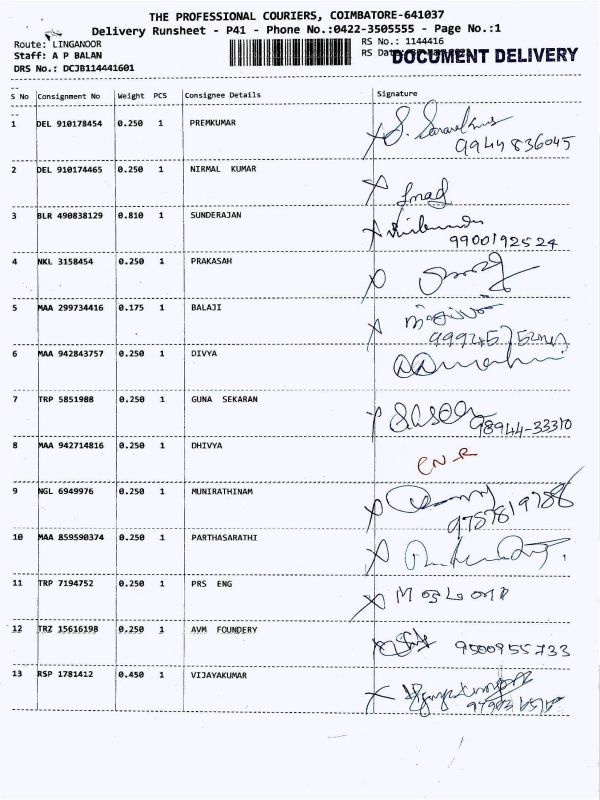 THE PROFESSIONAL COURIERS, COIMBATORE-641037
Delivery Runsheet - P41 - Phone No.:0422-3505555 - Page No.:1
Route: LINGANOOR RS No.: 1144416
Staff: A P BALAN RS Date: DOCUMENT DELIVERY
DRS No.: DCJB114441601
S No Consignment No Weight PCS Consignee Details Signature
1 DEL 910178454 0.250 1 PREMKUMAR
9944836045
2 DEL 910174465 0.250 1 NIRMAL KUMAR
3 BLR 490838129 0.810 1 SUNDERAJAN
9900192524
4 NKL 3158454 0.250 1 PRAKASAH
5 MAA 299734416 0.175 1 BALAJI
6 MAA 942843757 0.250 1 DIVYA
7 TRP 5851988 0.250 1 GUNA SEKARAN
98944-33310
8 MAA 942714816 0.250 1 DHIVYA
9 NGL 6949976 0.250 1 MUNIRATHINAM
9787819788
10 MAA 859590374 0.250 1 PARTHASARATHI
11 TRP 7194752 0.250 1 PRS ENG
12 TRZ 15616198 0.250 1 AVM FOUNDERY
9500955733
13 RSP 1781412 0.450 1 VIJAYAKUMAR